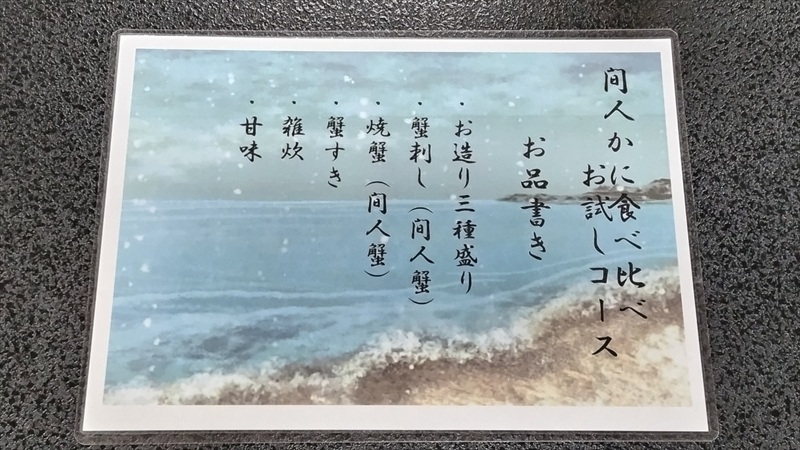 間人かに食べ比べ
お試しコース
お品書き
・お造り三種盛り
・蟹刺し(間人蟹)
・焼蟹(間人蟹)
・蟹すき
・雑炊
・甘味